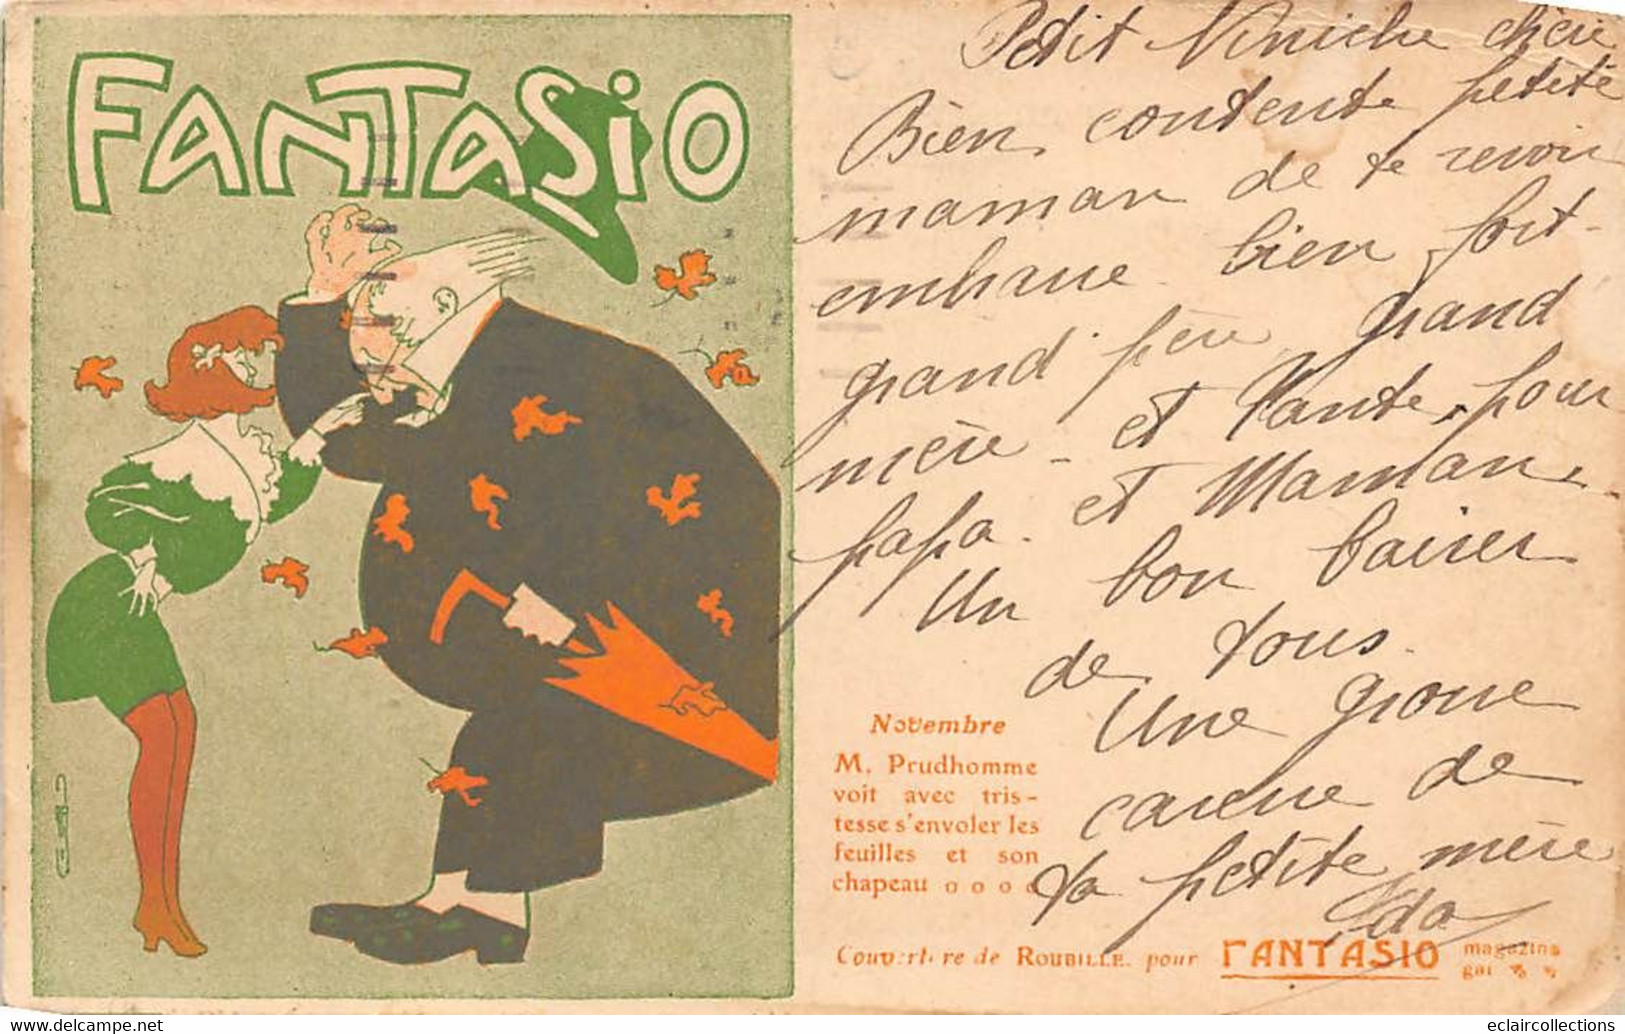 FANTASIO
Petit Niniche chérie
Bien contente petite
maman de te revoir
embrasse bien fort
grand père grand
mère - et Tante, pour
papa - et Maman.
Un bon baiser
de tous.
Une grosse
caresse de
ta petite mère
Ida
Novembre
M. Prudhomme
voit avec tris-
tesse s'envoler les
feuilles et son
chapeau o o o o
Couverture de ROUBILLE pour FANTASIO magazine
gai
eclaircollections